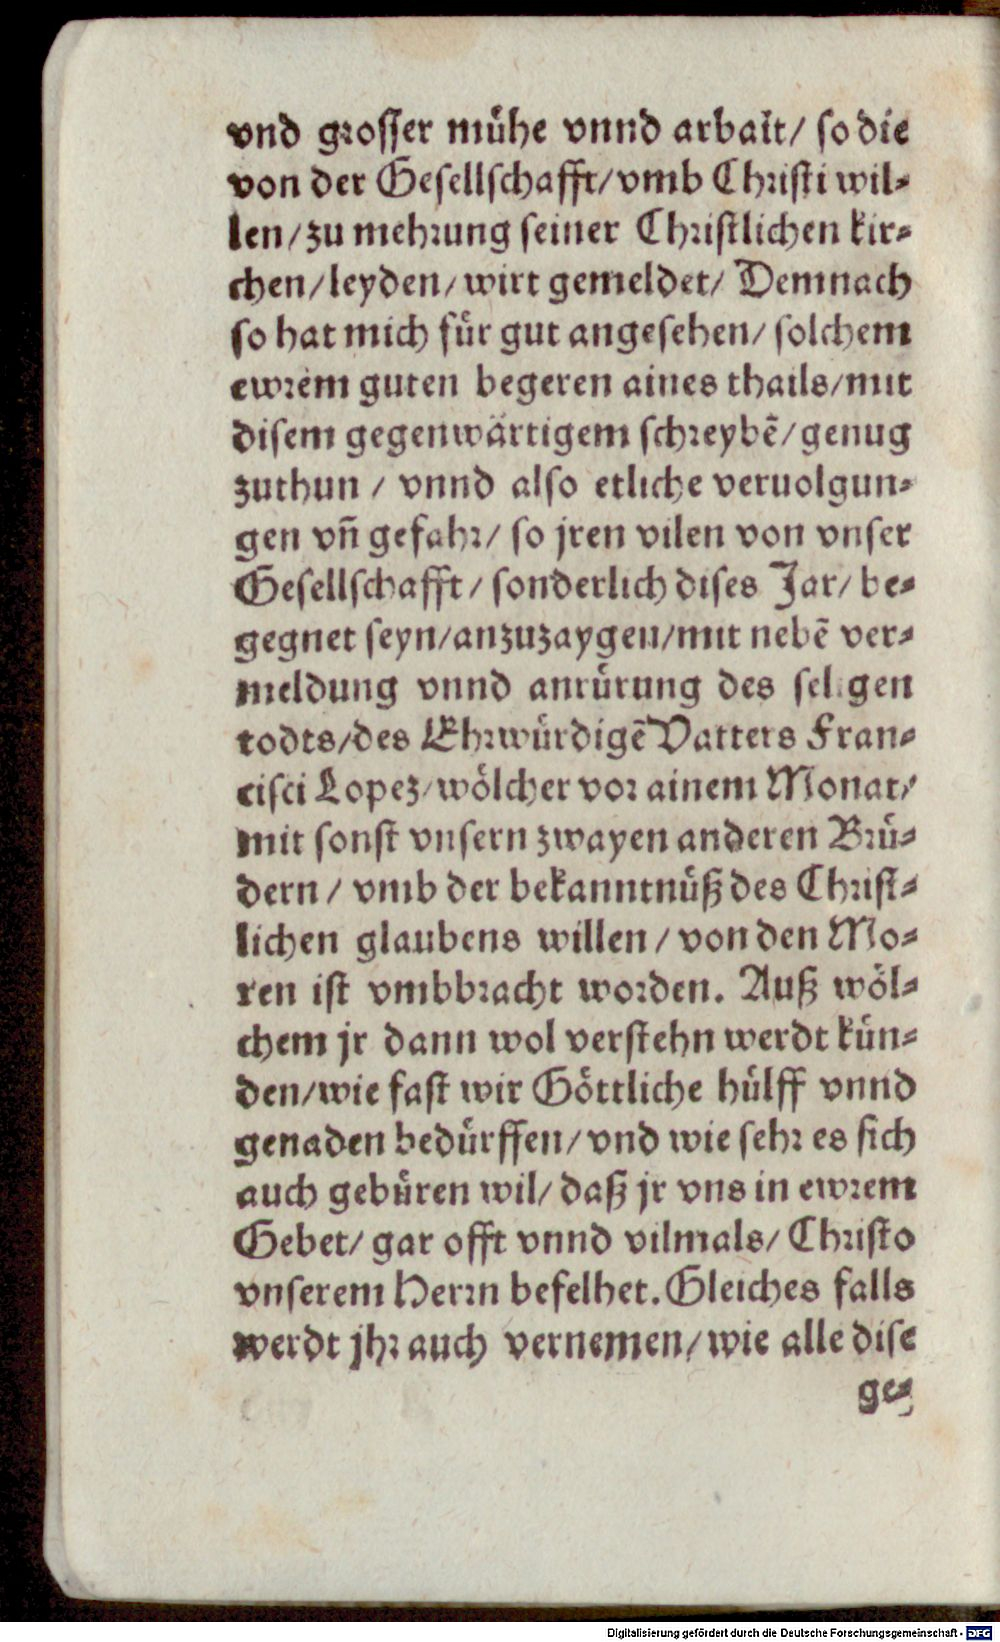 vnd grosser mühe vnnd arbait/ so die
von der Gesellschafft/ vmb Christi wil-
len/ zu mehrung seiner Christlichen kir-
chen/ leyden/ wirt gemeldet/ Demnach
so hat mich für gut angesehen/ solchem
ewrem guten begeren aines thails/ mit
disem gegenwärtigem schreybẽ/ genug
zuthun / vnnd also etliche veruolgun-
gen vñ gefahr/ so jren vilen von vnser
Gesellschafft/ sonderlich dises Jar/ be-
gegnet seyn/ anzuzaygen/ mit nebẽ ver-
meldung vnnd anrürung des seligen
todts/ des Ehrwürdigẽ Vatters Fran-
cisci Lopez/ wölcher vor ainem Monat/
mit sonst vnsern zwayen anderen Brü-
dern / vmb der bekanntnüß des Christ-
lichen glaubens willen / von den Mo-
ren ist vmbbracht worden. Auß wöl-
chem jr dann wol verstehn werdt kün-
den/ wie fast wir Göttliche hülff vnnd
genaden bedürffen/ vnd wie sehr es sich
auch gebüren wil/ daß jr vns in ewrem
Gebet/ gar offt vnnd vilmals/ Christo
vnserem Herrn befelhet. Gleiches falls
werdt jhr auch vernemen/ wie alle dise
ge-
Digitalisierung gefördert durch die Deutsche Forschungsgemeinschaft - DFG